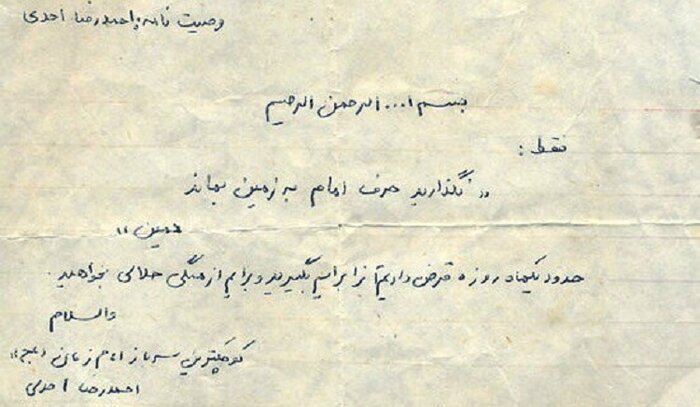 وصیت نامه احمدرضا احدی
بسم ا... الرحمن الرحیم
فقط :
« نگذارید حرف امام به زمین بماند
همین »
حدود یکماه روزه قرض دارم آنرا برایم بگیرید و برایم از همگی حلالی بخواهید.
والسلام
کوچکترین سرباز امام زمان (عج)
احمدرضا احدی